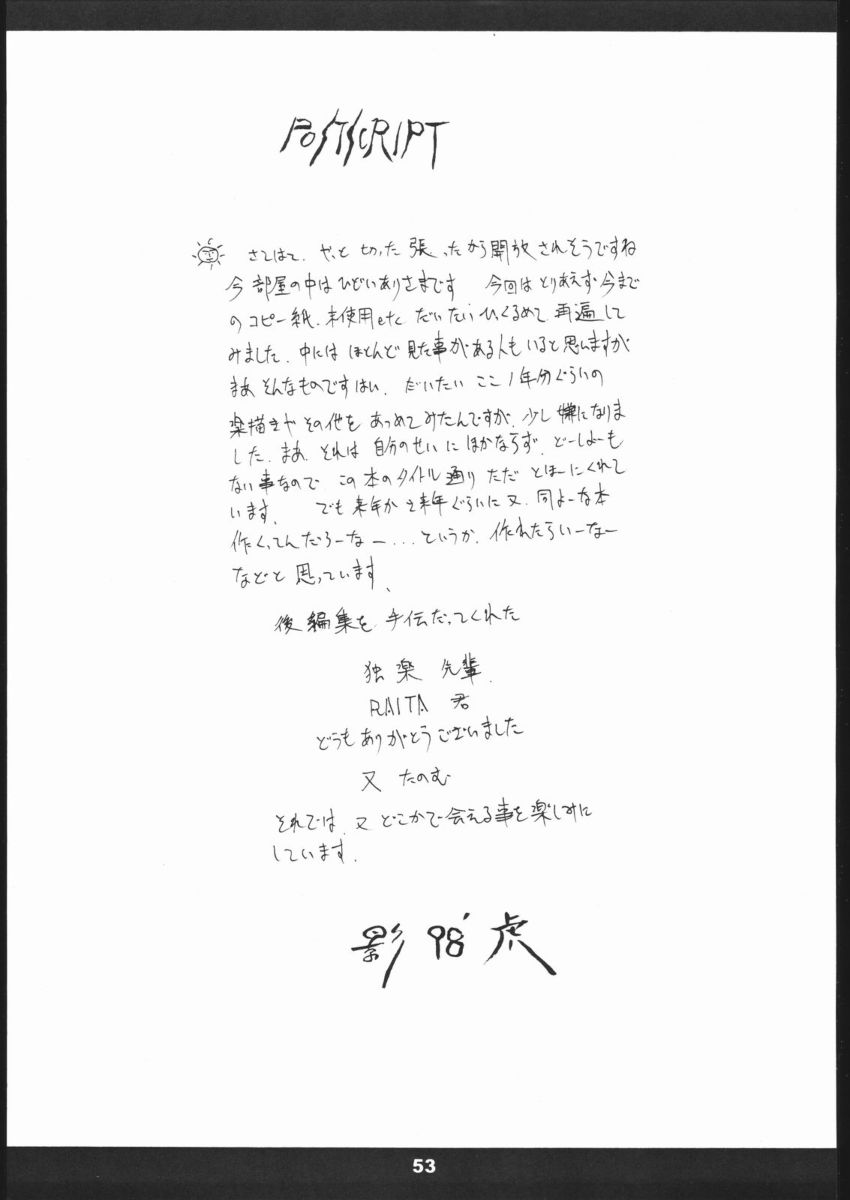 POSTSCRIPT
さてはて、やっと切った張ったから開放されそうですね
今部屋の中はひどいありさまです 今回はとりあえず今まで
のコピー紙、未使用etc だいたいひっくるめて、再逼して
みました、中にはほとんど見た事がある人もいると思いますが
まあそんなものですはい、だいたいここ1年分ぐらいの
楽描きやその他をあつめてみたんですが、少し嫌になりま
した、まあ、それは自分のせいにほかならず、どーしよーも
ない事なので、この本のタイトル通りただとほーにくれて
います、 でも来年か再来年ぐらいに又、同よーな本
作くってんだろーなー...というか、作れたらいーなー
などと思っています、
後編集を手伝だってくれた
独楽 先輩、
RAITA 君
どうもありがとうございました
又 たのむ
それでは、又どこかで会える事を楽しみに
しています、
影 98' 虎
53